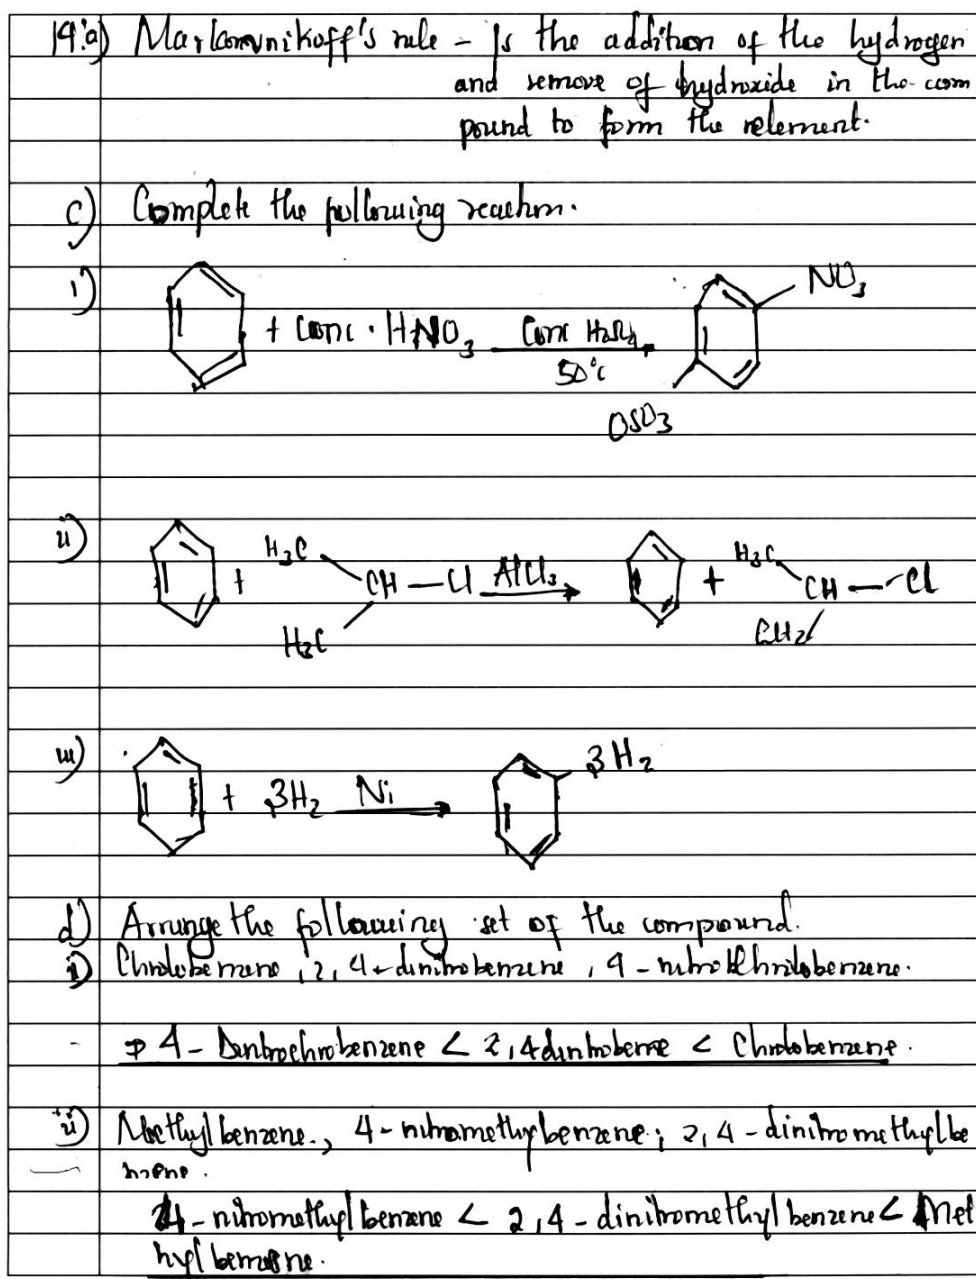 14.a) Markomvnikoff's rule - Is the addition of the hydrogen
and remove of hydroxide in the com
pound to form the relement.
c) Complete the following reaction.
i) + Conc . HNO3 Conc H2SO4 50°c NO3
OSO3
ii) + H3C CH - Cl H3C AlCl3 + H3C CH - Cl CH2
iii) + 3H2 Ni 3H2
d) Arrange the following set of the compound.
i) Chrolobenzene, 2, 4-dinitrobenzene, 4-nitro Chrolobenzene.
⇒ 4- Dinitrochrobenzene < 2,4dinitrobenze < Chrolobenzene.
ii) Methyl benzene., 4-nitromethylbenzene; 2,4-dinitromethylbe
nzene.
4-nitromethyl benzene < 2,4-dinitromethyl benzene < Met
hyl benzene.